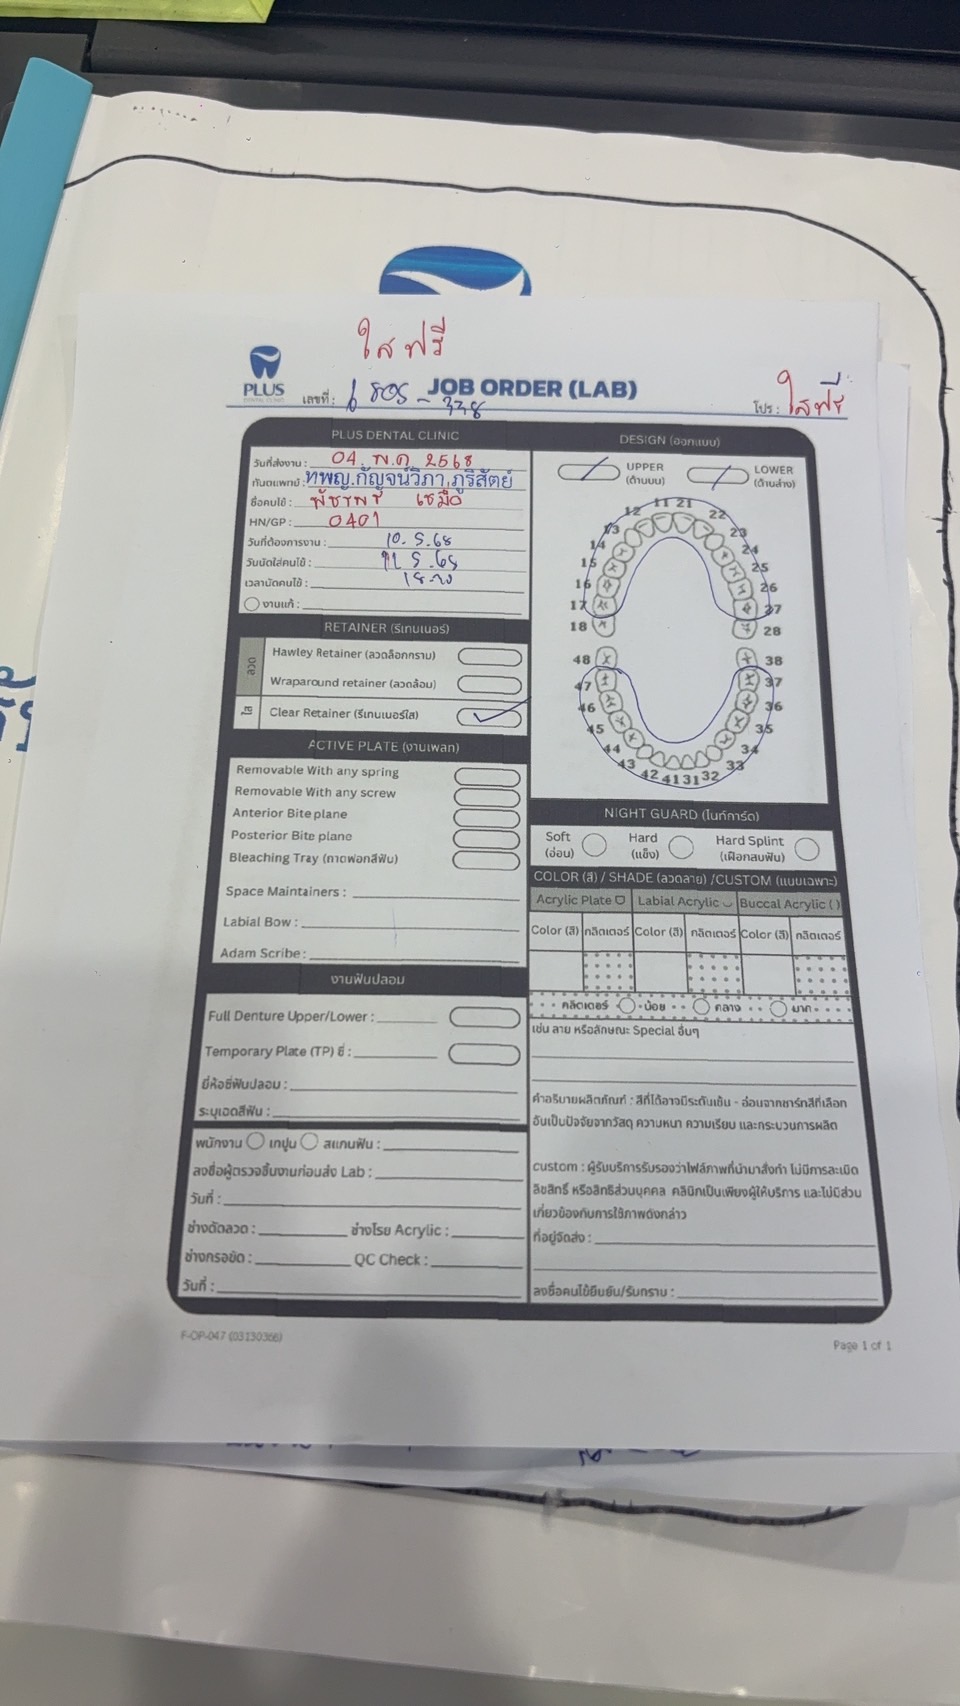 ใสฟรี
PLUS
DENTAL CLINIC
เลขที่ :
6805-338
JOB ORDER (LAB)
โปร : ใสฟรี
PLUS DENTAL CLINIC
วันที่ส่งงาน : 04 พ.ค 2568
ทันตแพทย์ : ทพญ.กัญจน์วิภา ภูริสัตย์
ชื่อคนไข้ :
HN/GP : 0401
วันที่ต้องการงาน : 10. 5. 68
วันนัดใส่คนไข้ : 11. 5. 68
เวลานัดคนไข้ :
งานแก้ :
RETAINER (รีเทนเนอร์)
ลวด
Hawley Retainer (ลวดล็อกกราม)
Wraparound retainer (ลวดล้อม)
ใส
Clear Retainer (รีเทนเนอร์ใส)
ACTIVE PLATE (งานเพลท)
Removable With any spring
Removable With any screw
Anterior Bite plane
Posterior Bite plane
Bleaching Tray (ถาดฟอกสีฟัน)
Space Maintainers :
Labial Bow :
Adam Scribe :
งานฟันปลอม
Full Denture Upper/Lower :
Temporary Plate (TP) ซี่ :
ยี่ห้อซี่ฟันปลอม :
ระบุเฉดสีฟัน :
พนักงาน เทปูน สแกนฟัน :
ลงชื่อผู้ตรวจชิ้นงานก่อนส่ง Lab :
วันที่ :
ช่างดัดลวด : ช่างโรย Acrylic :
ช่างกรอขัด : QC Check :
วันที่ :
DESIGN (ออกแบบ)
UPPER
(ด้านบน)
LOWER
(ด้านล่าง)
11 21
12 22
13 23
14 24
15 25
16 26
17 27
18 28
48 38
47 37
46 36
45 35
44 34
43 33
42 41 31 32
NIGHT GUARD (ไนท์การ์ด)
Soft
(อ่อน)
Hard
(แข็ง)
Hard Splint
(เฝือกสบฟัน)
COLOR (สี) / SHADE (ลวดลาย) /CUSTOM (แบบเฉพาะ)
Acrylic Plate Labial Acrylic Buccal Acrylic ( )
Color (สี) กลิตเตอร์ Color (สี) กลิตเตอร์ Color (สี) กลิตเตอร์
กลิตเตอร์ น้อย กลาง มาก
เช่น ลาย หรือลักษณะ Special อื่นๆ
คำอธิบายผลิตภัณฑ์ : สีที่ได้อาจมีระดับเข้ม - อ่อนจากชาร์ทสีที่เลือก
อันเป็นปัจจัยจากวัสดุ ความหนา ความเรียบ และกระบวนการผลิต
custom : ผู้รับบริการรับรองว่าไฟล์ภาพที่นำมาสั่งทำ ไม่มีการละเมิด
ลิขสิทธิ์ หรือสิทธิส่วนบุคคล คลินิกเป็นเพียงผู้ให้บริการ และไม่มีส่วน
เกี่ยวข้องกับการใช้ภาพดังกล่าว
ที่อยู่จัดส่ง :
ลงชื่อคนไข้ยืนยัน/รับทราบ :
F-OP-047 (03130366)
Page 1 of 1